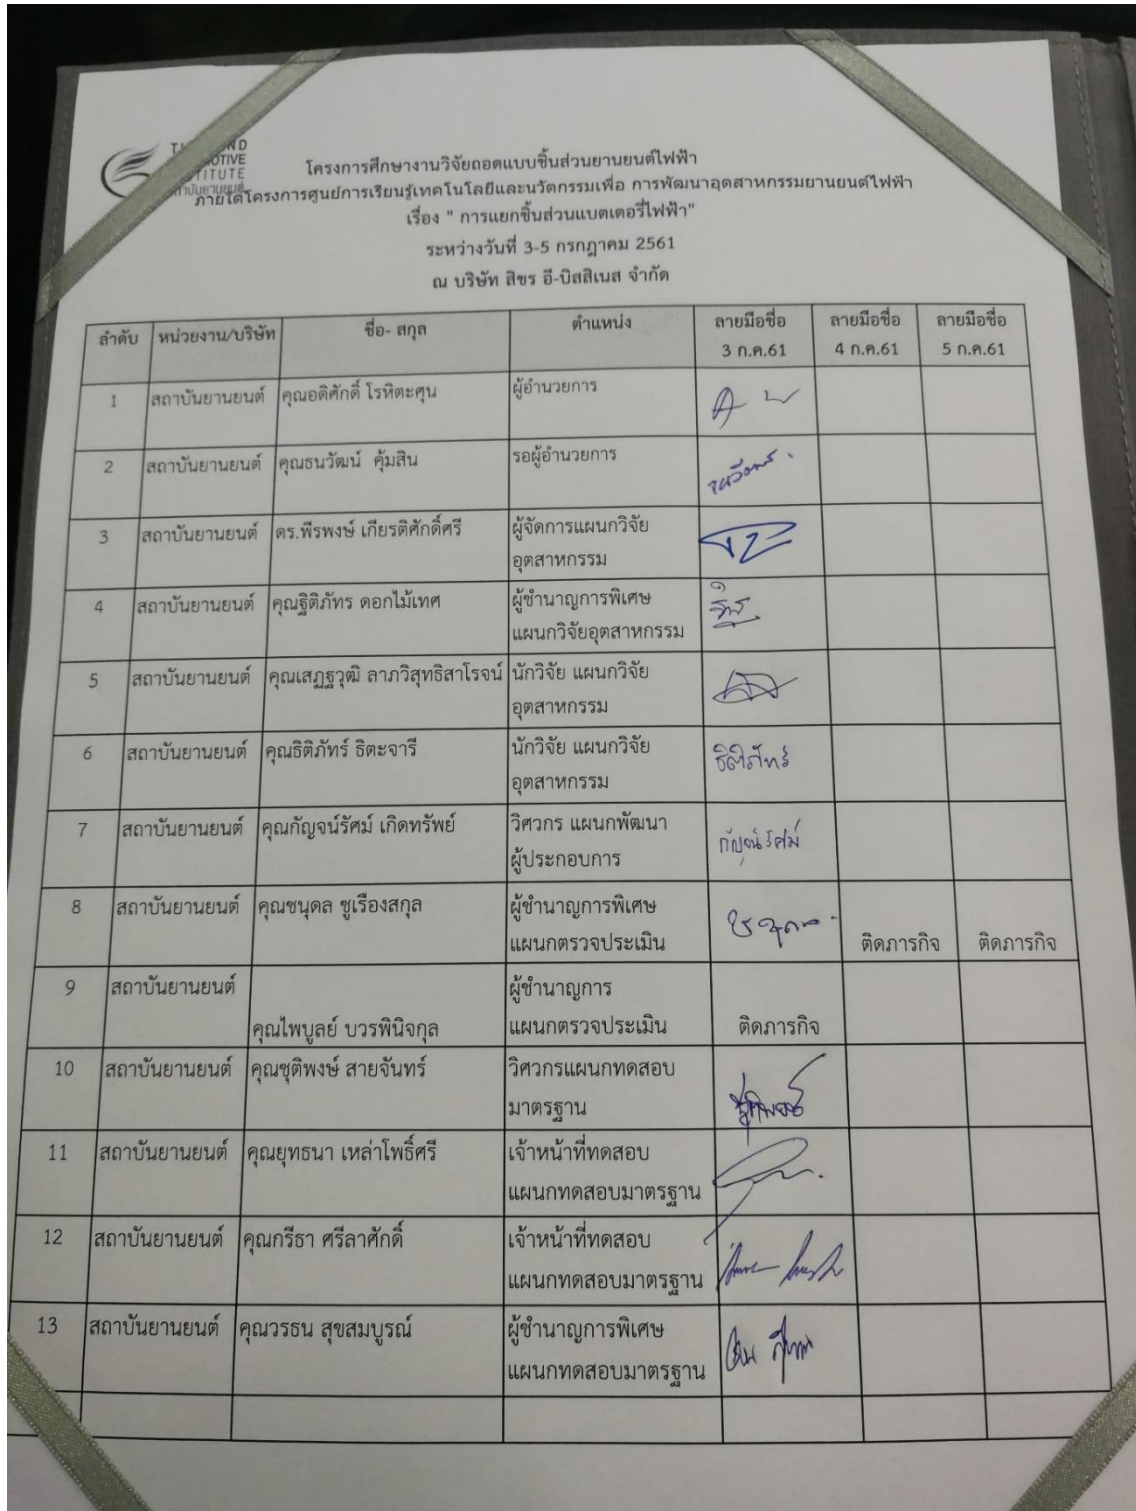 โครงการศึกษางานวิจัยถอดแบบชิ้นส่วนยานยนต์ไฟฟ้า
ภายใต้โครงการศูนย์การเรียนรู้เทคโนโลยีและนวัตกรรมเพื่อ การพัฒนาอุตสาหกรรมยานยนต์ไฟฟ้า
เรื่อง " การแยกชิ้นส่วนแบตเตอรี่ไฟฟ้า"
ระหว่างวันที่ 3-5 กรกฎาคม 2561
ณ บริษัท สิขร อี-บิสสิเนส จำกัด
ลำดับ หน่วยงาน/บริษัท ชื่อ- สกุล ตำแหน่ง ลายมือชื่อ ลายมือชื่อ ลายมือชื่อ
3 ก.ค.61 4 ก.ค.61 5 ก.ค.61
1 สถาบันยานยนต์ คุณอดิศักดิ์ โรหิตะศุน ผู้อำนวยการ
2 สถาบันยานยนต์ คุณธนวัฒน์ คุ้มสิน รอผู้อำนวยการ
3 สถาบันยานยนต์ ดร.พีรพงษ์ เกียรติศักดิ์ศรี ผู้จัดการแผนกวิจัย
อุตสาหกรรม
4 สถาบันยานยนต์ คุณฐิติภัทร ดอกไม้เทศ ผู้ชำนาญการพิเศษ
แผนกวิจัยอุตสาหกรรม
5 สถาบันยานยนต์ คุณเสฏฐวุฒิ ลาภวิสุทธิสาโรจน์ นักวิจัย แผนกวิจัย
อุตสาหกรรม
6 สถาบันยานยนต์ คุณธิติภัทร์ ธิตะจารี นักวิจัย แผนกวิจัย ธิติภัทร์
อุตสาหกรรม
7 สถาบันยานยนต์ คุณกัญจน์รัศม์ เกิดทรัพย์ วิศวกร แผนกพัฒนา กัญจน์รัศม์
ผู้ประกอบการ
8 สถาบันยานยนต์ คุณชนุดล ชูเรืองสกุล ผู้ชำนาญการพิเศษ
แผนกตรวจประเมิน ติดภารกิจ ติดภารกิจ
9 สถาบันยานยนต์ ผู้ชำนาญการ
คุณไพบูลย์ บวรพินิจกุล แผนกตรวจประเมิน ติดภารกิจ
10 สถาบันยานยนต์ คุณชุติพงษ์ สายจันทร์ วิศวกรแผนกทดสอบ
มาตรฐาน
11 สถาบันยานยนต์ คุณยุทธนา เหล่าโพธิ์ศรี เจ้าหน้าที่ทดสอบ
แผนกทดสอบมาตรฐาน
12 สถาบันยานยนต์ คุณกรีธา ศรีลาศักดิ์ เจ้าหน้าที่ทดสอบ
แผนกทดสอบมาตรฐาน
13 สถาบันยานยนต์ คุณวรธน สุขสมบูรณ์ ผู้ชำนาญการพิเศษ
แผนกทดสอบมาตรฐาน